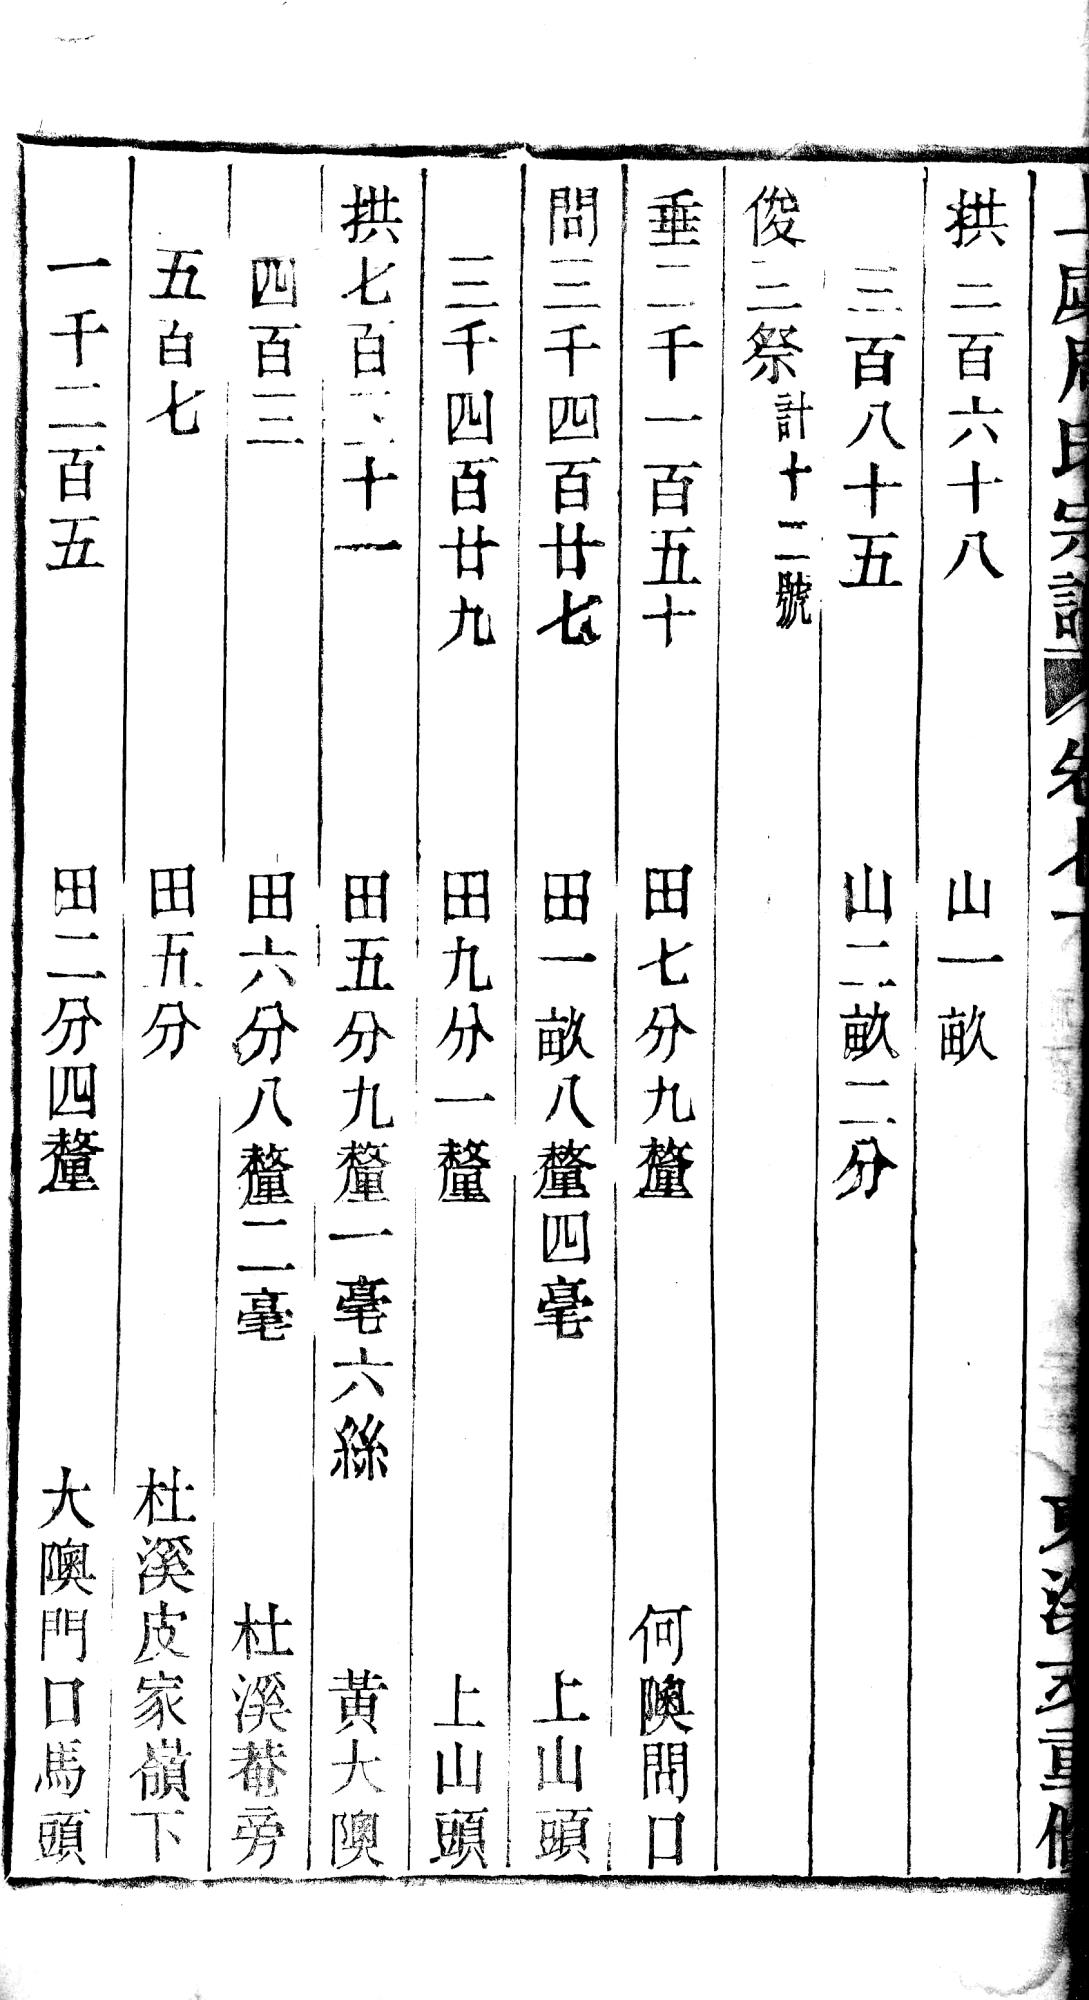 周氏宗譜 卷七 重修
拱二百六十八 山一畝
三百八十五 山二畝二分
俊二祭計十二號
垂二千一百五十 田七分九釐 何隩閈口
問三千四百廿七 田一畝八釐四毫 上山頭
三千四百廿九 田九分一釐 上山頭
拱七百十一 田五分九釐一毫六絲 黃大隩
四百三 田六分八釐二毫 杜溪菴旁
五百七 田五分 杜溪皮家嶺下
一千二百五 田二分四釐 大隩門口馬頭